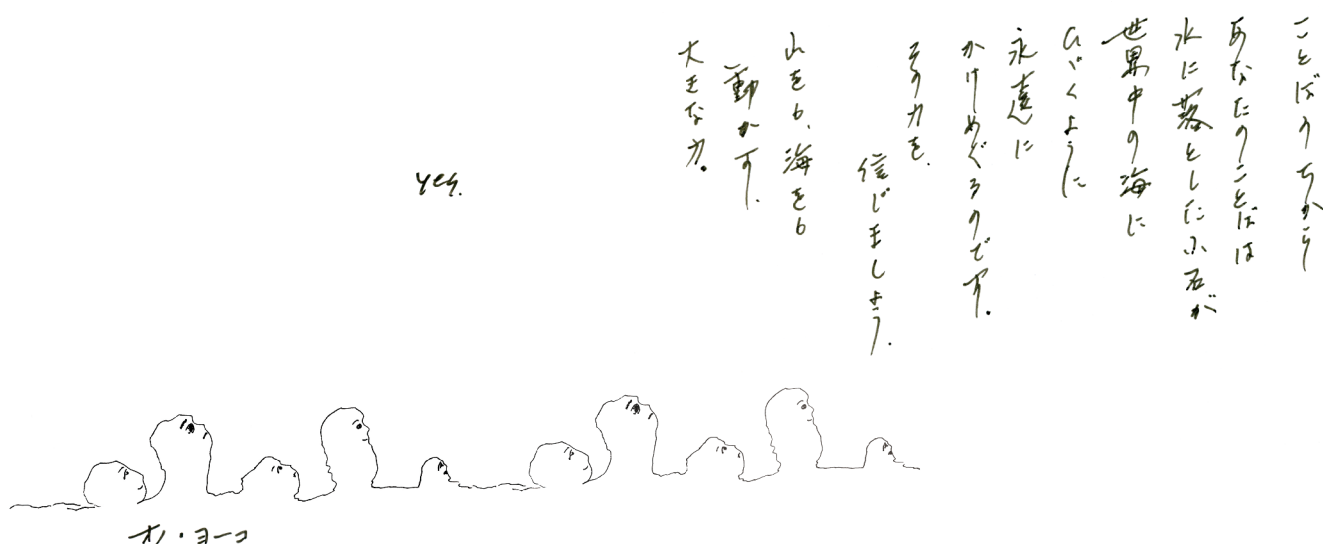 ことばのちから
あなたのことばは
水に落とした小石が
世界中の海に
ひゞくように
永遠に
かけめぐるのです。
その力を、
信じましょう。
山をも、海をも
動かす、
大きな力。
yes.
オノ・ヨーコ